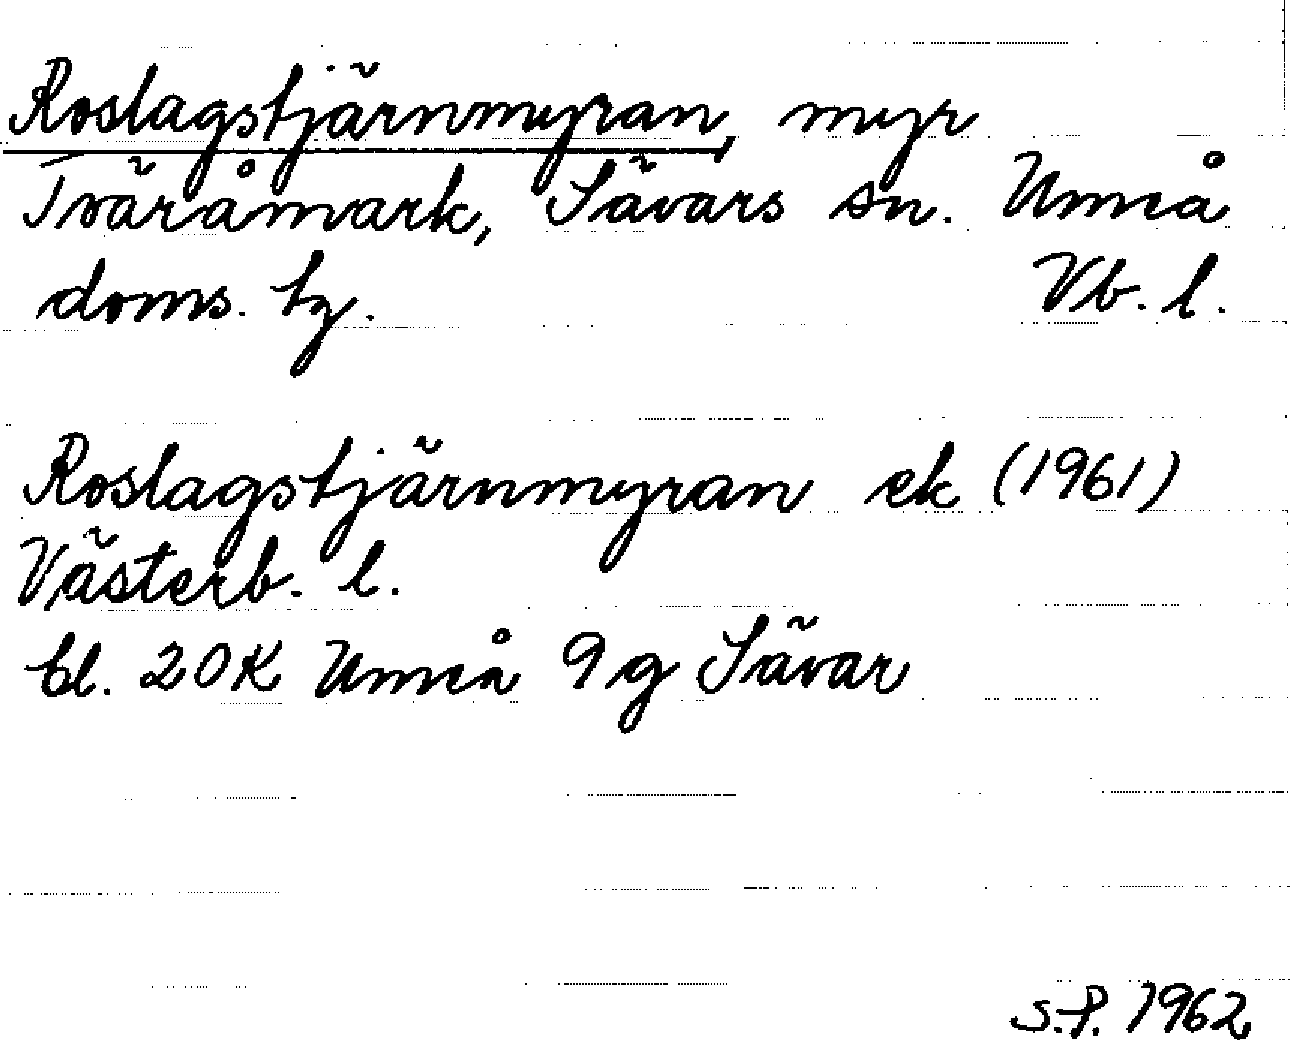 Roslagstjärnmyran, myr
Tväråmark, Sävars sn. Umeå
doms. tg. Vb. l.
Roslagstjärnmyran ek (1961)
Västerb. l.
bl. 20K Umeå 9g Sävar
S.P. 1962